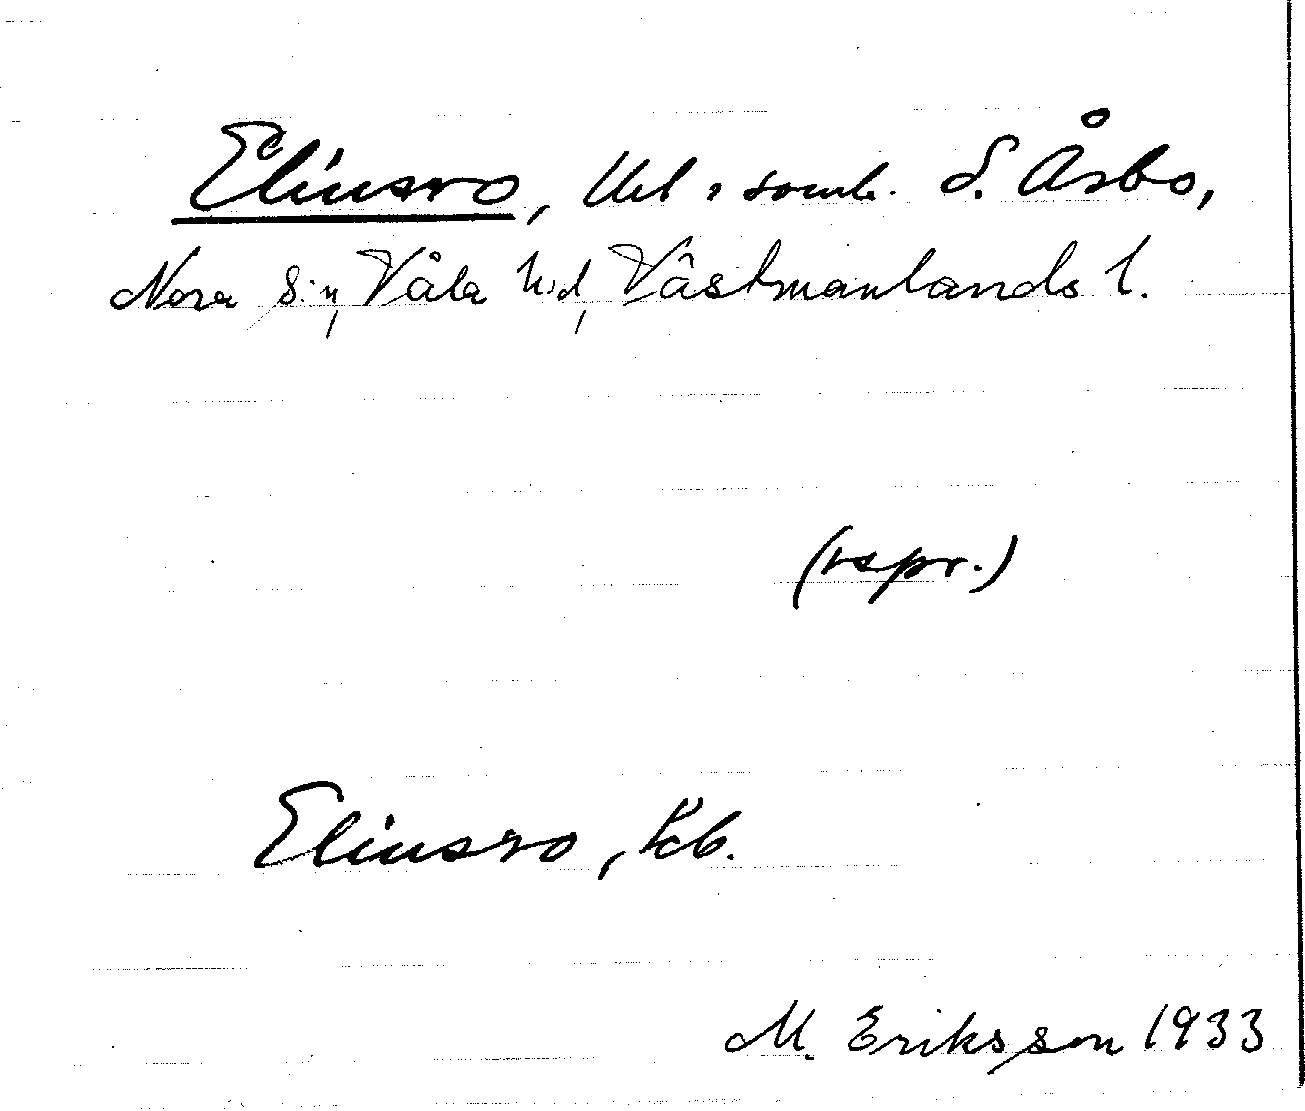 Elinsro, Utl. i samh. S. Åsbo,
Nora S:n, Våla Hd, Västmanlands l.
(rspr.)
Elinsro, Kb.
M. Eriksson 1933